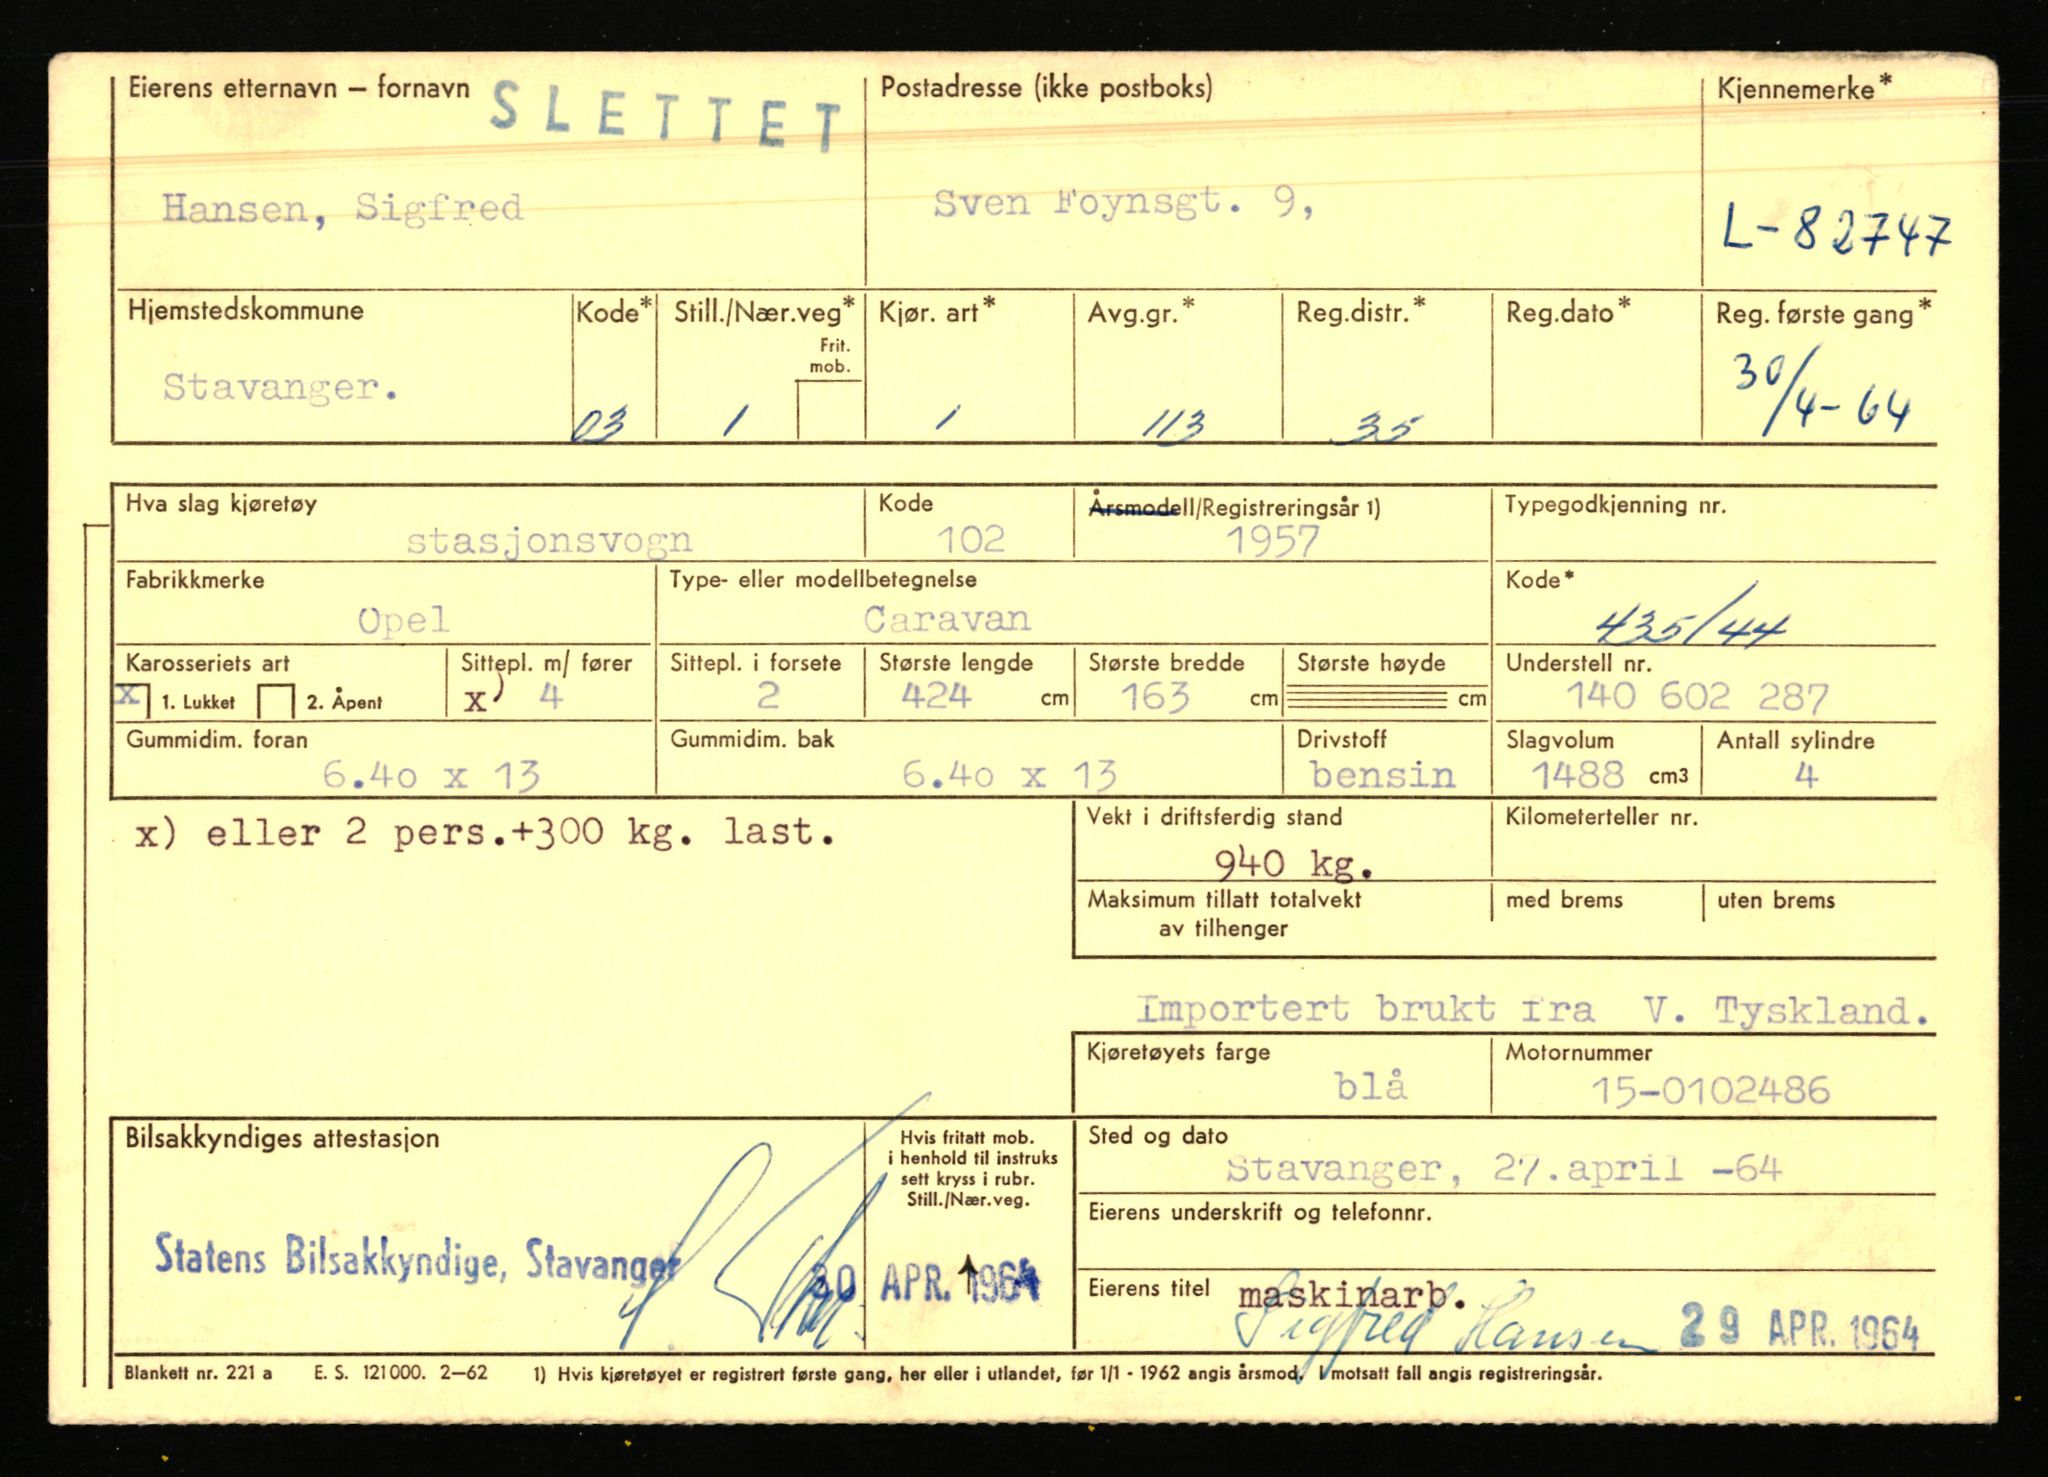 Eierens etternavn – fornavn
SLETTET
Postadresse (ikke postboks)
Kjennemerke*
Hansen, Sigfred
Sven Foynsgt. 9,
L-82747
Hjemstedskommune
Kode*
Still./Nær.veg*
Frit.
mob.
Kjør. art*
Avg.gr.*
Reg.distr.*
Reg.dato*
Reg. første gang*
Stavanger.
03
1
1
113
35
30/4-64
Hva slag kjøretøy
Kode
Årsmodell/Registreringsår 1)
Typegodkjenning nr.
stasjonsvogn
102
1957
Fabrikkmerke
Type- eller modellbetegnelse
Kode*
Opel
Caravan
435/44
Karosseriets art
Sittepl. m/ fører
Sittepl. i forsete
Største lengde
Største bredde
Største høyde
Understell nr.
x 1. Lukket
2. Åpent
x) 4
2
424 cm
163 cm
cm
140 602 287
Gummidim. foran
Gummidim. bak
Drivstoff
Slagvolum
Antall sylindre
6.40 x 13
6.40 x 13
bensin
1488 cm3
4
x) eller 2 pers.+300 kg. last.
Vekt i driftsferdig stand
Kilometerteller nr.
940 kg.
Maksimum tillatt totalvekt
av tilhenger
med brems
uten brems
Importert brukt fra V. Tyskland.
Kjøretøyets farge
Motornummer
blå
15-0102486
Bilsakkyndiges attestasjon
Hvis fritatt mob.
i henhold til instruks
sett kryss i rubr.
Still./Nær.veg.
Sted og dato
Stavanger, 27.april -64
Eierens underskrift og telefonnr.
Statens Bilsakkyndige, Stavanger
30 APR. 1964
Eierens titel
maskinarb.
Sigfred Hansen
29 APR. 1964
Blankett nr. 221 a E. S. 121000. 2–62 1) Hvis kjøretøyet er registrert første gang, her eller i utlandet, før 1/1 - 1962 angis årsmod. I motsatt fall angis registreringsår.